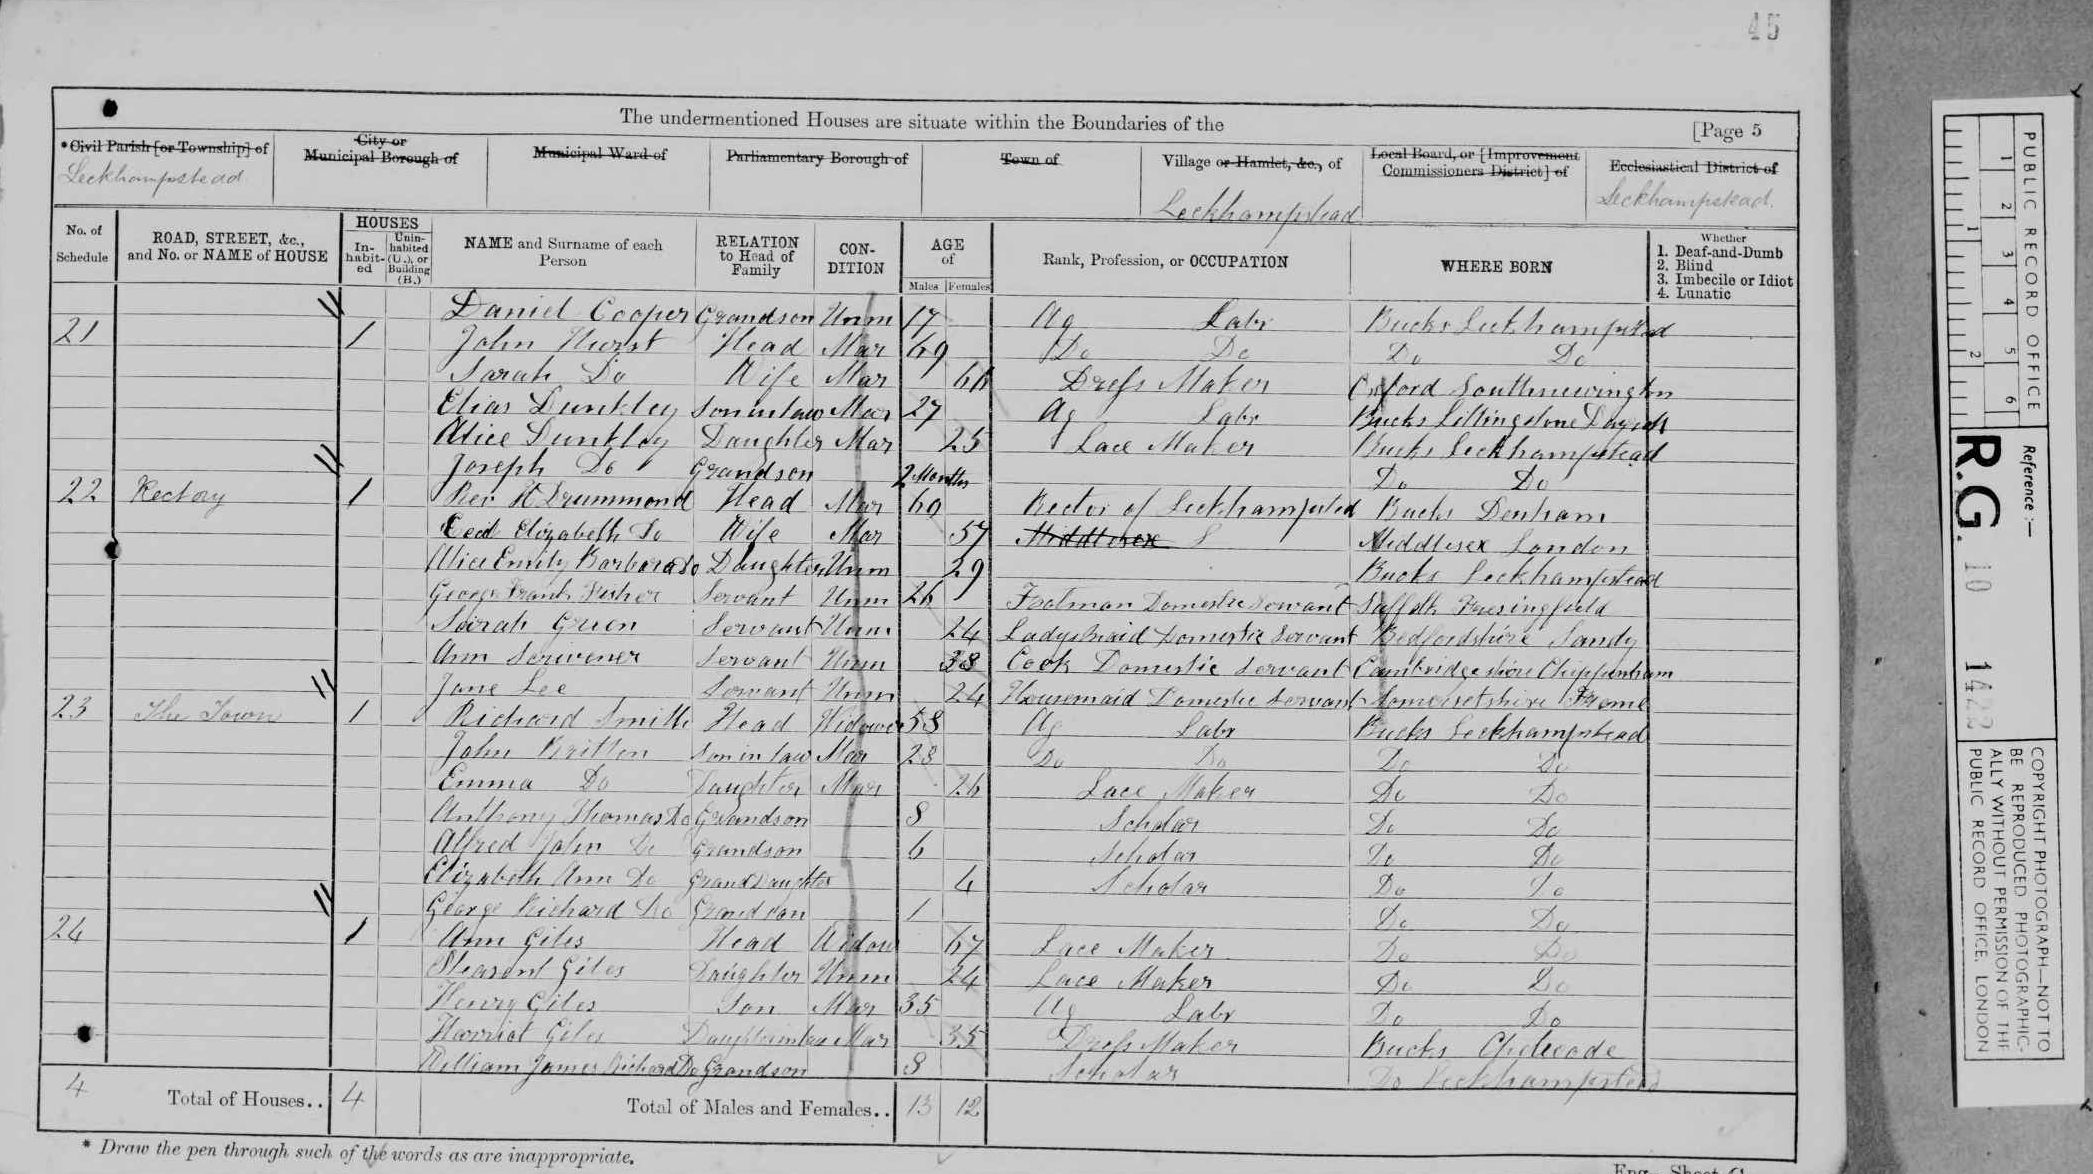 45
The undermentioned Houses are situate within the Boundaries of the
[Page 5
*Civil Parish [or Township] of
City or Municipal Borough of
Municipal Ward of
Parliamentary Borough of
Town of
Village or Hamlet, &c., of
Local Board, or [Improvement Commissioners District] of
Ecclesiastical District of
Leckhampstead
Leckhampstead
Leckhampstead
No. of Schedule
ROAD, STREET, &c., and No. or NAME of HOUSE
HOUSES
In-habit-ed
Unin-habited (U.), or Building (B.)
NAME and Surname of each Person
RELATION to Head of Family
CON-DITION
AGE of
Males
Females
Rank, Profession, or OCCUPATION
WHERE BORN
Whether
1. Deaf-and-Dumb
2. Blind
3. Imbecile or Idiot
4. Lunatic
Daniel Cooper Grandson Unm 17 Ag Labr Bucks Leckhampsted
21 1 John Hurst Head Mar 69 Do Do Do Do
Sarah Do Wife Mar Dress Maker Oxford Southnewington
Elias Dunkley Son in law Mar 27 Ag Labr Bucks Lillingstone
Alice Dunkley Daughter Mar 25 Lace Maker Bucks Leckhampstead
Joseph Do Grandson 2 Months Do Do
22 Rectory 1 Rev H Drummond Head Mar 60 Rector of Leckhampsted Bucks Denham
Elizabeth Do Wife Mar 57 Middlesex Middlesex London
Alice Emily Barbara Do Daughter Unm 29 Bucks Leckhampstead
George Frank Fisher Servant Unm 26 Footman Domestic Servant Suffolk Fressingfield
Sarah Green Servant Unm 24 Ladysmaid Domestic Servant Bedfordshire Sandy
Ann Scrivener Servant Unm 38 Cook Domestic Servant Cambridgeshire Chippenham
Jane Lee Servant Unm 24 Housemaid Domestic Servant Somersetshire Frome
23 The Town 1 Richard Smith Head Widower 58 Ag Labr Bucks Leckhampstead
John Britton Son in law Mar 28 Do Do Do Do
Emma Do Daughter Mar 26 Lace Maker Do Do
Anthony Thomas Do Grandson 8 Scholar Do Do
Alfred John Do Grandson 6 Scholar Do Do
Elizabeth Ann Do Grand Daughter 4 Scholar Do Do
George Richard Do Grandson 1 Do Do
24 1 Ann Giles Head Widow 67 Lace Maker Do Do
Pleasent Giles Daughter Unm 24 Lace Maker Do Do
Henry Giles Son Mar 35 Ag Labr Do Do
Harriot Giles Daughterinlaw Mar 35 Dress Maker Bucks
William James Richard Do Grandson 8 Scholar Do Leckhampstead
4 Total of Houses.. 4 Total of Males and Females.. 13 12
* Draw the pen through such of the words as are inappropriate.
PUBLIC RECORD OFFICE
1 2 3 4 5 6
1 2
Reference:—
R.G. 10 1422
COPYRIGHT PHOTOGRAPH—NOT TO
BE REPRODUCED PHOTOGRAPHIC-
ALLY WITHOUT PERMISSION OF THE
PUBLIC RECORD OFFICE, LONDON